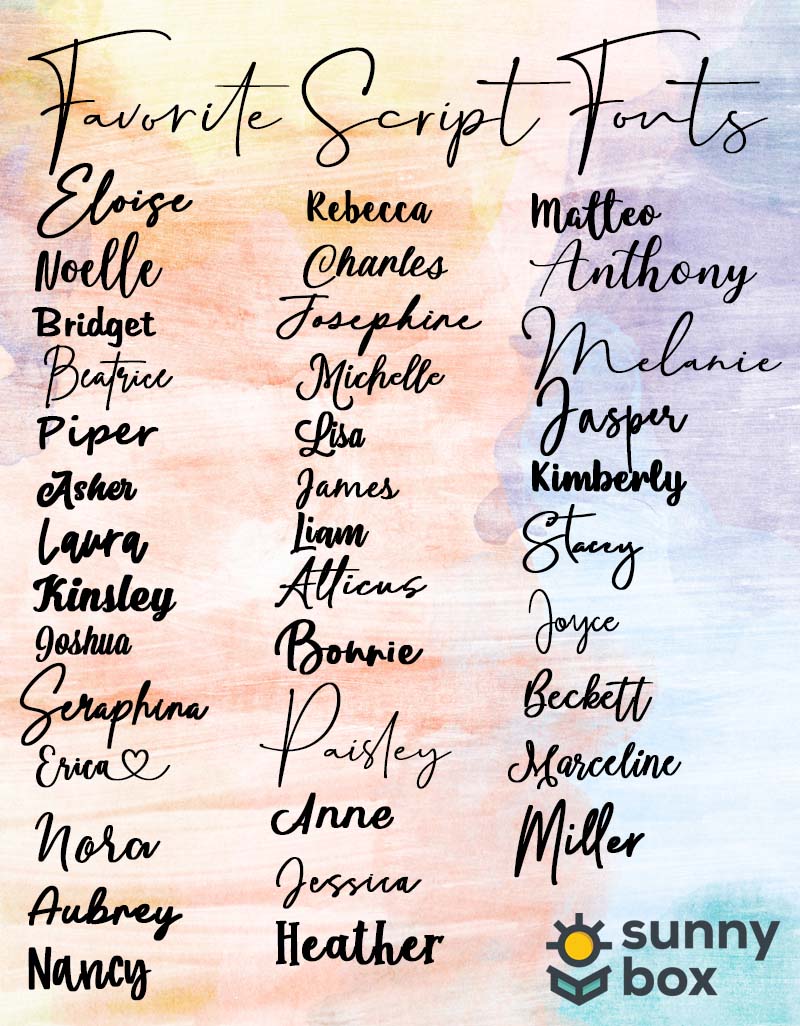 Favorite Script Fonts
Eloise
Noelle
Bridget
Beatrice
Piper
Asher
Laura
Kinsley
Joshua
Seraphina
Erica
Nora
Aubrey
Nancy
Rebecca
Charles
Josephine
Michelle
Lisa
James
Liam
Atticus
Bonnie
Paisley
Anne
Jessica
Heather
Matteo
Anthony
Melanie
Jasper
Kimberly
Stacey
Joyce
Beckett
Marceline
Miller
sunny
box